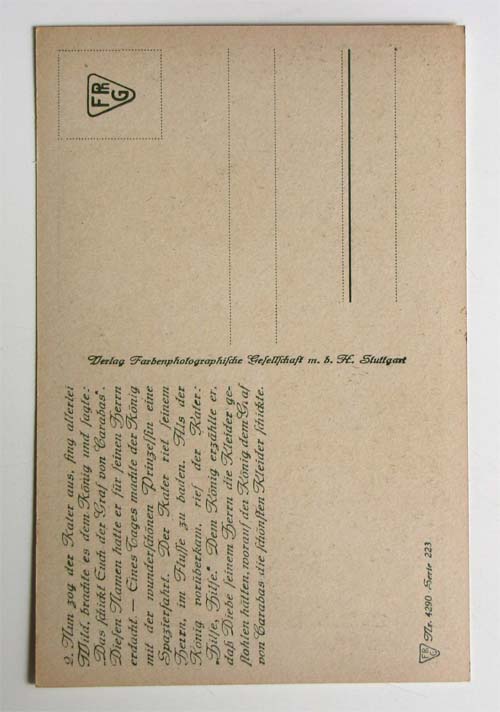 2. Nun zog der Kater aus, fing allerlei
Wild, brachte es dem König und sagte:
„Das schickt Euch der Graf von Carabas“.
Diesen Namen hatte er für seinen Herrn
erdacht. — Eines Tages machte der König
mit der wunderschönen Prinzessin eine
Spazierfahrt. Der Kater rief seinem
Herrn, im Flusse zu baden. Als der
König vorüberkam, rief der Kater:
„Hilfe, Hilfe.“ Dem König erzählte er,
daß Diebe seinem Herrn die Kleider ge-
stohlen hätten, worauf der König dem Graf
von Carabas die schönsten Kleider schickte.
FRG Nr. 4290 · Serie 223
Verlag Farbenphotographische Gesellschaft m. b. H. Stuttgart